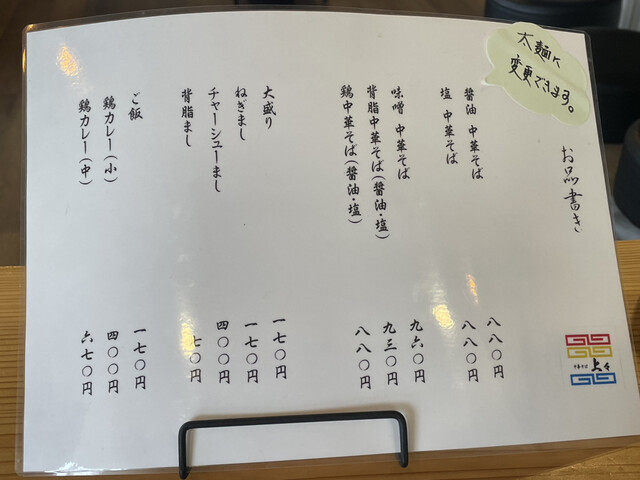 太麺に
変更できます。
お品書き
醤油 中華そば 八八〇円
塩 中華そば 八八〇円
味噌 中華そば 九六〇円
背脂中華そば(醤油・塩) 九三〇円
鶏中華そば(醤油・塩) 八八〇円
大盛り 一七〇円
ねぎまし 一七〇円
チャーシューまし 四〇〇円
背脂まし 七〇円
ご飯 一七〇円
鶏カレー(小) 四〇〇円
鶏カレー(中) 六七〇円
中華そば
上々